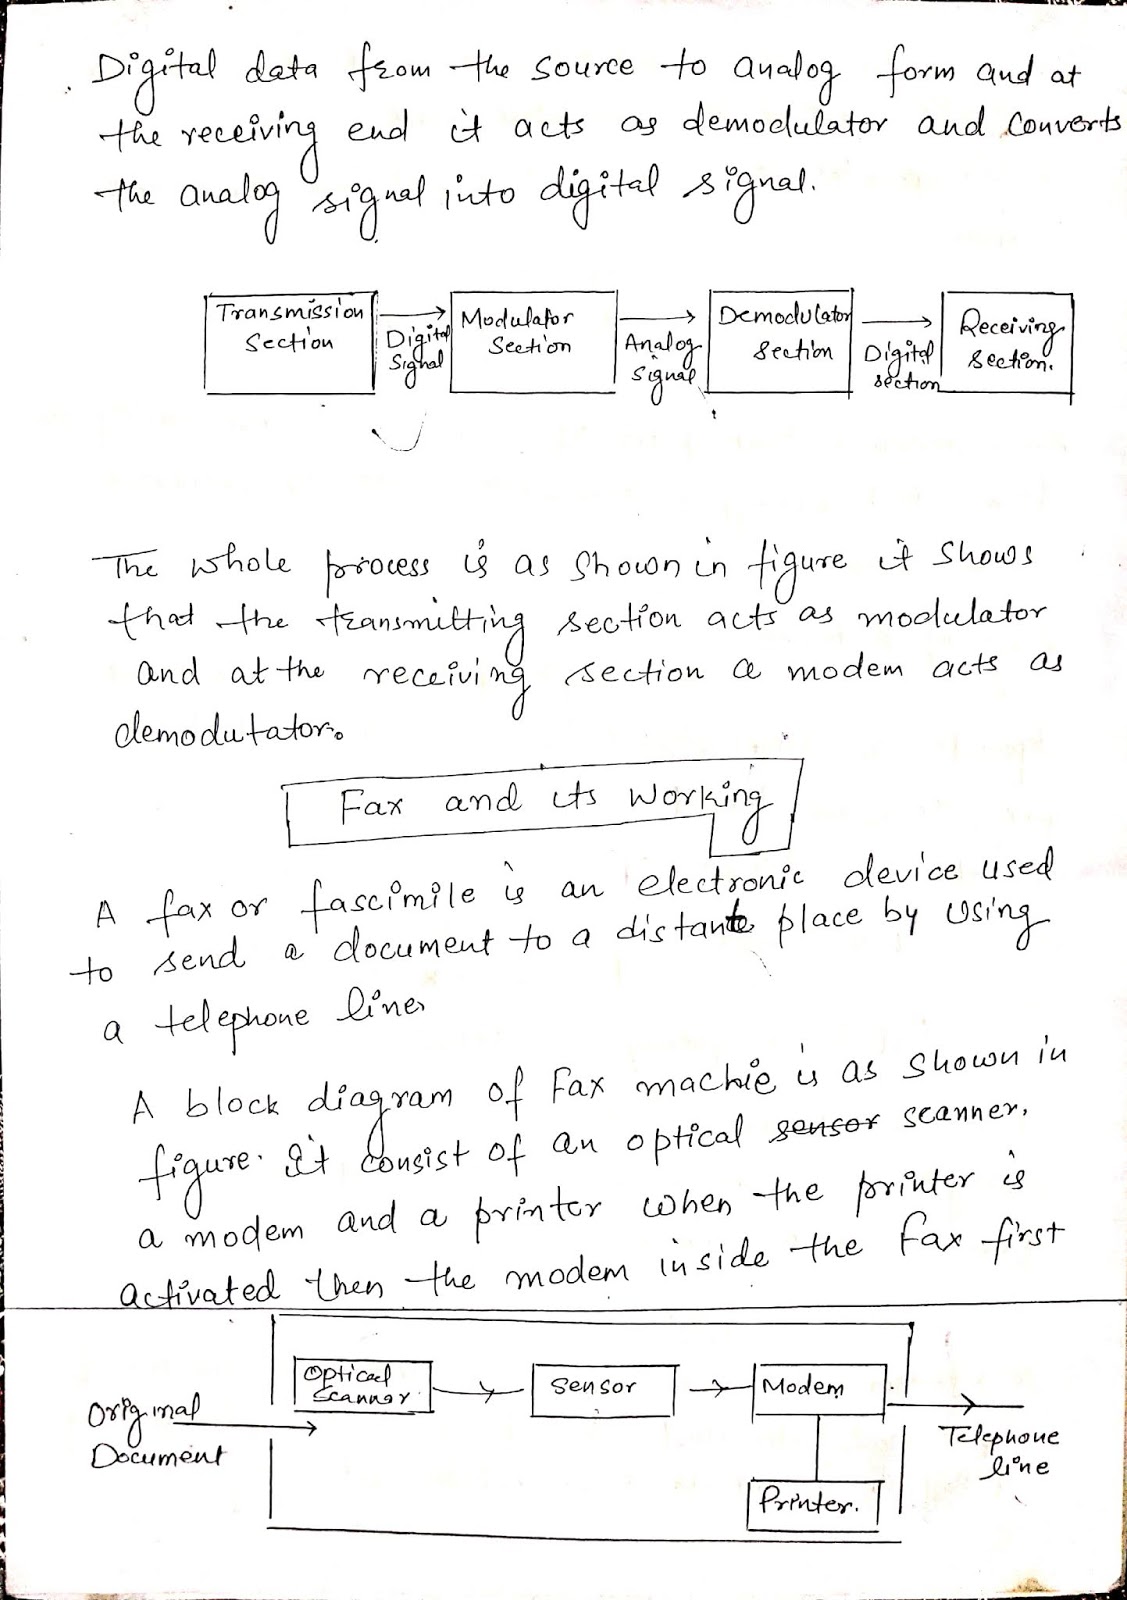 Digital data from the source to analog form and at
the receiving end it acts as demodulator and converts
the analog signal into digital signal.
Transmission
Section
Digital
Signal
Modulator
Section
Analog
Signal
Demodulator
Section
Digital
section
Receiving
section.
The whole process is as shown in figure it shows
that the transmitting section acts as modulator
and at the receiving section a modem acts as
demodutator.
Fax and its working
A fax or fascimile is an electronic device used
to send a document to a distante place by using
a telephone line.
A block diagram of Fax machie is as shown in
figure. It consist of an optical sensor scanner.
a modem and a printer when the printer is
activated then the modem inside the fax first
Original
Document
Optical
Scanner
Sensor
Modem
Printer.
Telephone
line